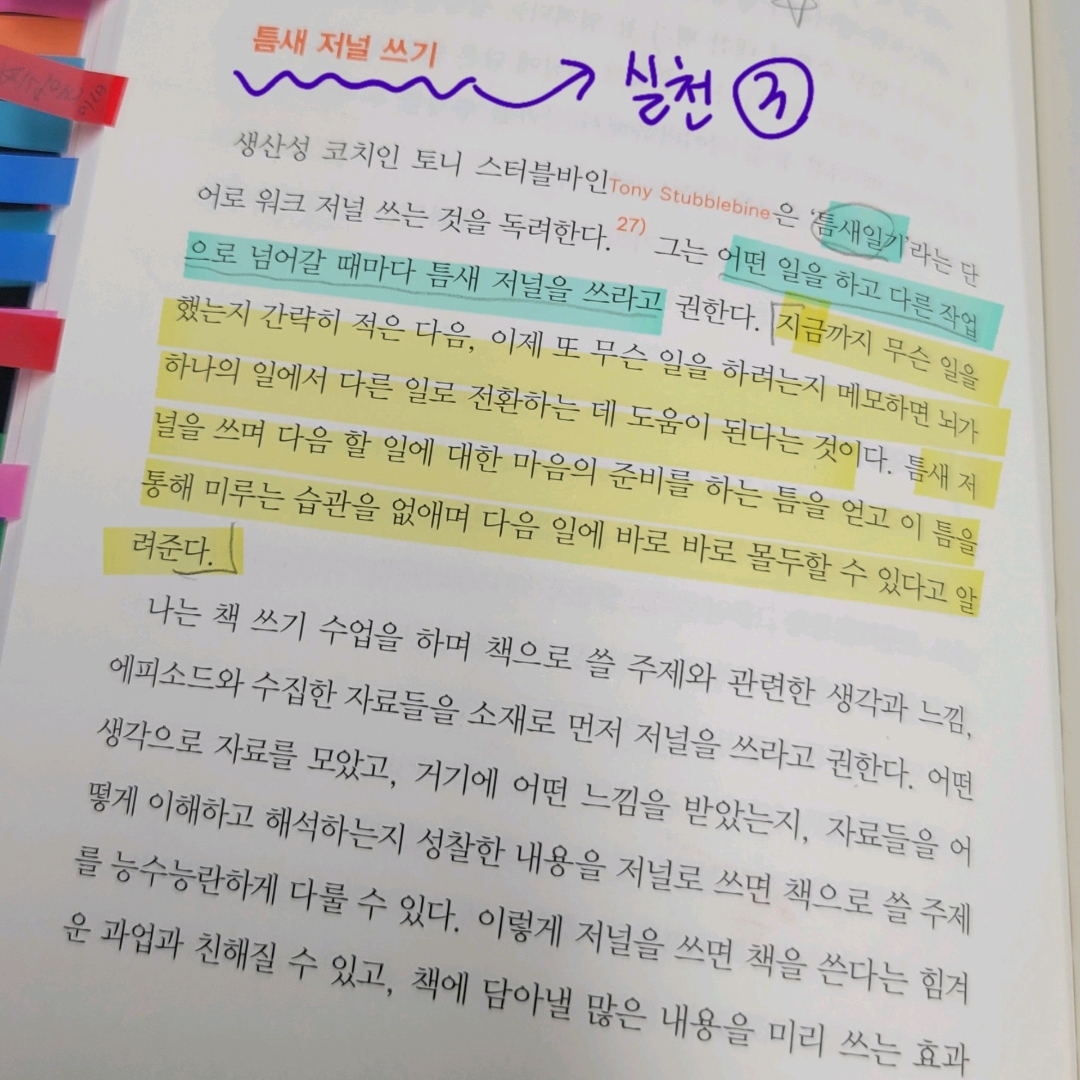 틈새 저널 쓰기
실천 ③
생산성 코치인 토니 스터블바인Tony Stubblebine은 ‘틈새일기’라는 단
어로 워크 저널 쓰는 것을 독려한다.27) 그는 어떤 일을 하고 다른 작업
으로 넘어갈 때마다 틈새 저널을 쓰라고 권한다. 지금까지 무슨 일을
했는지 간략히 적은 다음, 이제 또 무슨 일을 하려는지 메모하면 뇌가
하나의 일에서 다른 일로 전환하는 데 도움이 된다는 것이다. 틈새 저
널을 쓰며 다음 할 일에 대한 마음의 준비를 하는 틈을 얻고 이 틈을
통해 미루는 습관을 없애며 다음 일에 바로 바로 몰두할 수 있다고 알
려준다.
나는 책 쓰기 수업을 하며 책으로 쓸 주제와 관련한 생각과 느낌,
에피소드와 수집한 자료들을 소재로 먼저 저널을 쓰라고 권한다. 어떤
생각으로 자료를 모았고, 거기에 어떤 느낌을 받았는지, 자료들을 어
떻게 이해하고 해석하는지 성찰한 내용을 저널로 쓰면 책으로 쓸 주제
를 능수능란하게 다룰 수 있다. 이렇게 저널을 쓰면 책을 쓴다는 힘겨
운 과업과 친해질 수 있고, 책에 담아낼 많은 내용을 미리 쓰는 효과